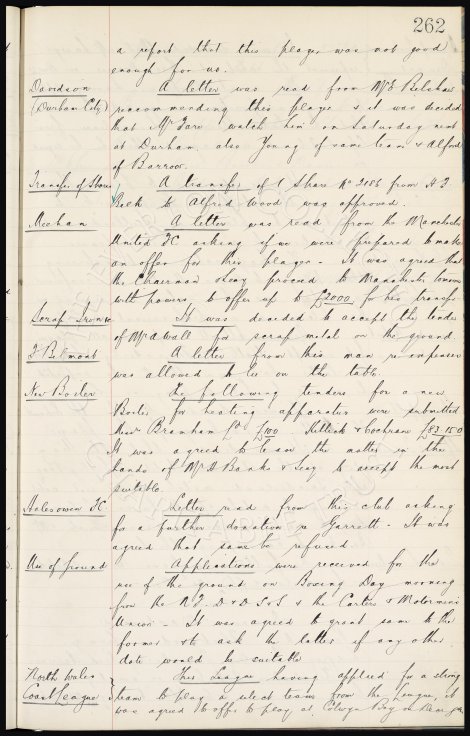 262
a report that this player was not good
enough for us.
Davidson A letter was read from Mr E Belshaw
(Durham City) recommending this player & it was decided
that Mr Farr watch him on Saturday next
at Durham, also Young of same team & Alford
of Barrow.
Transfer of Shares A transfer of 1 Share No 2086 from
to Alfred Wood was approved.
Meehan A letter was read from the Manchester
United FC asking if we were prepared to make
an offer for this player - It was agreed that
the Chairman & Secy proceed to Manchester
with powers to offer up to £2000 for his transfer
Scrap Iron It was decided to accept the tender
of Mr A Wall for scrap metal on the ground.
J Belmont A letter from this man re expenses
was allowed to lie on the table.
New Boiler The following tenders for a new
Boiler for heating apparatus were submitted
Messrs Branham Ld £100 Killick & Cochrane £83.15.0
It was agreed to leave the matter in the
hands of Mr Banks & Secy to accept the most
suitable.
Halesowen FC Letter read from this club asking
for a further donation re Garratt - It was
agreed that same be refused.
Use of ground Applications were received for the
use of the ground on Boxing Day morning
from the & the Carters & Motormens
Union - It was agreed to grant same to the
former & to ask the latter if any other
date would be suitable
North Wales This League having applied for a strong
Coast League team to play a select team from the League, it
was agreed to offer to play at Colwyn Bay on